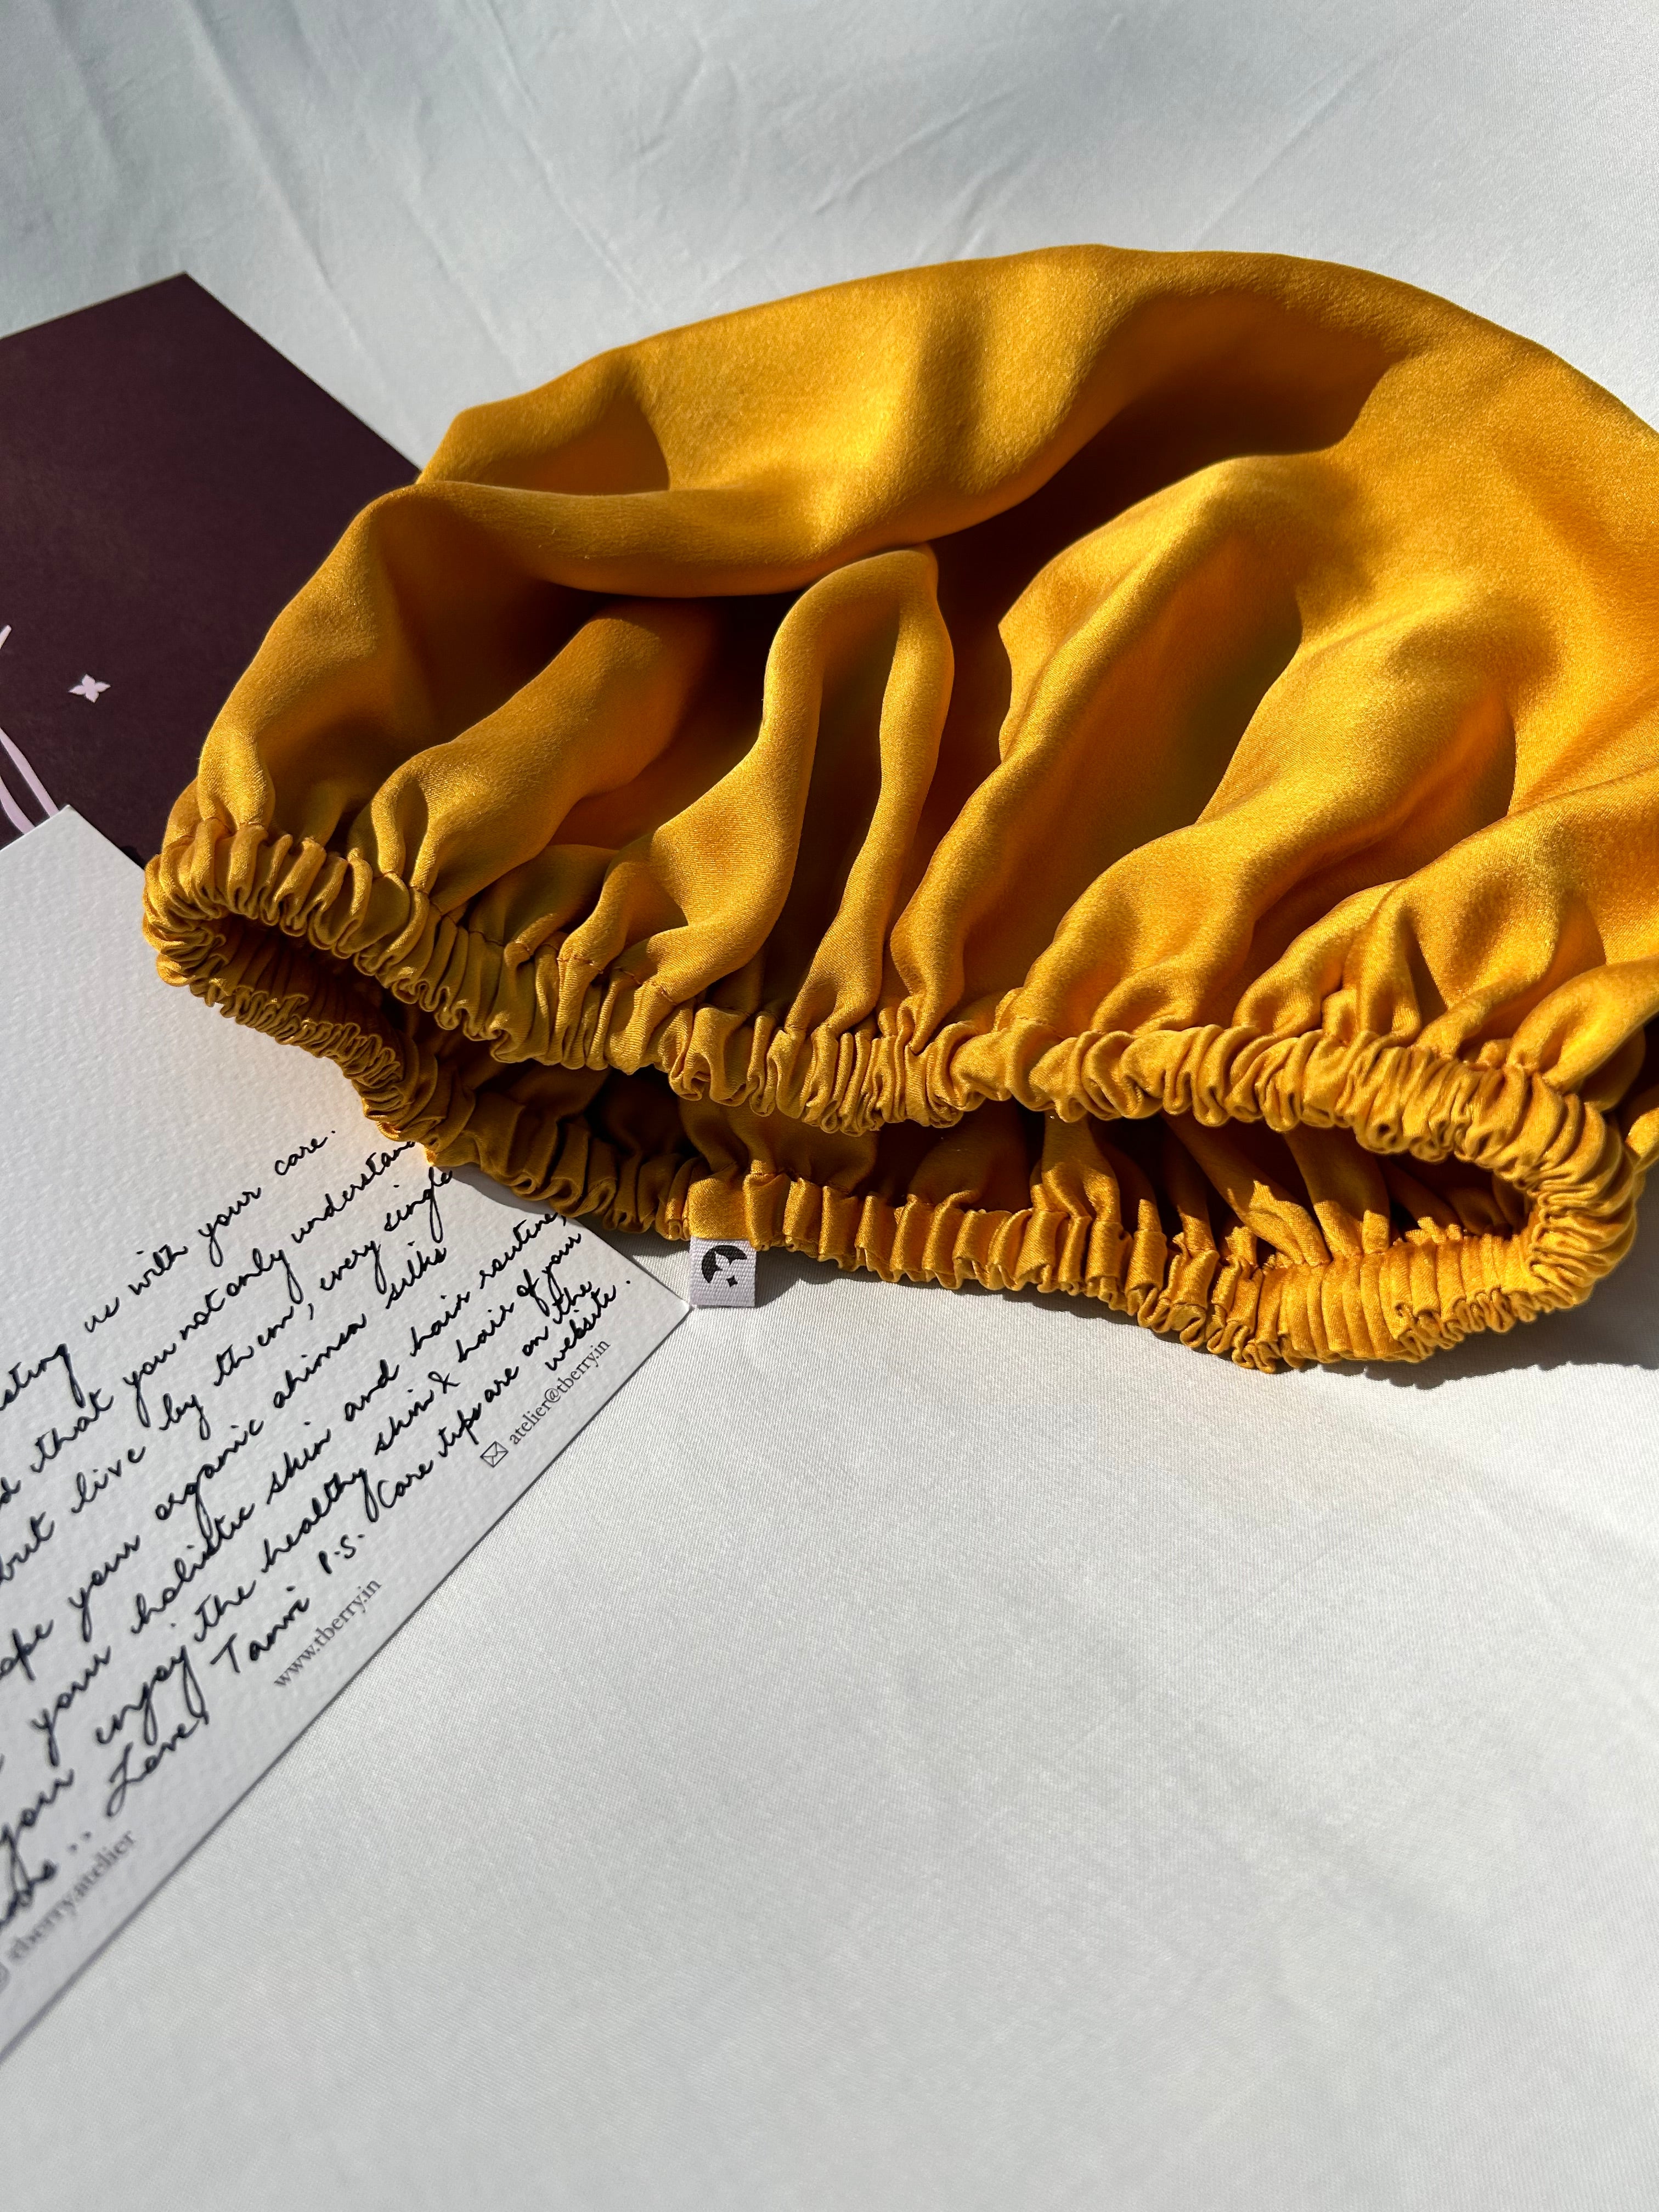 us with your care.
that you not only understand
but live by them, every single
your organic ahimsa silks
your holistic skin and hair routine,
you enjoy the healthy skin & hair of your
Love, Tanvi P.S. Care tips are on the
website.
atelier@tberry.in
www.tberry.in
tberry.atelier